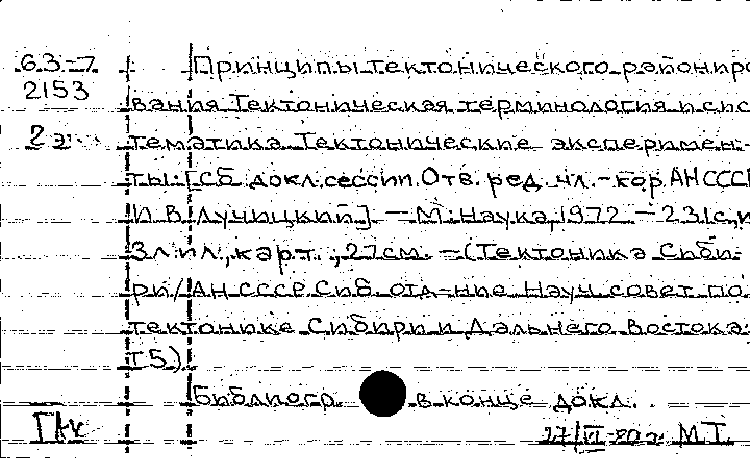 63-7 Принципы тектонического райониро
2153 вания. Тектоническая терминология и сис
2 э тематика. Тектонические эксперимен-
ты: [Сб. докл. сессии. Отв. ред. чл.-кор. АН СССР
И. В. Лучицкий]. — М.: Наука, 1972. — 231 с., и
3 л. ил., карт.; 27 см. — (Тектоника Сиби-
ри / АН СССР, Сиб. отд-ние. Науч. совет по
тектонике Сибири и Дальнего Востока.
т 5)
Библиогр. в конце докл.
ГАК 17/VI-80 г. М.Т.